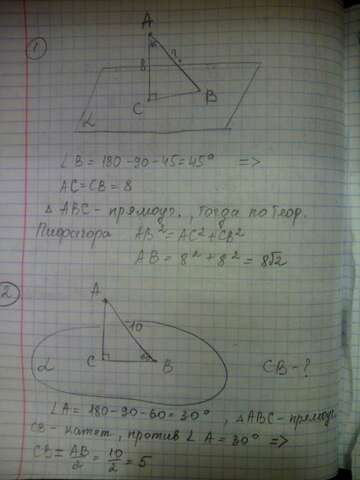 1
A
45
8
?
C
B
α
∠B = 180 - 90 - 45 = 45° =>
AC = CB = 8
△ABC - прямоуг., тогда по теор.
Пифагора AB² = AC² + CB²
AB = 8² + 8² = 8√2
2
A
10
C
60
B
α
CB - ?
∠A = 180 - 90 - 60 = 30°, △ABC - прямоуг.
CB - катет, против ∠A = 30° =>
CB = AB/2 = 10/2 = 5